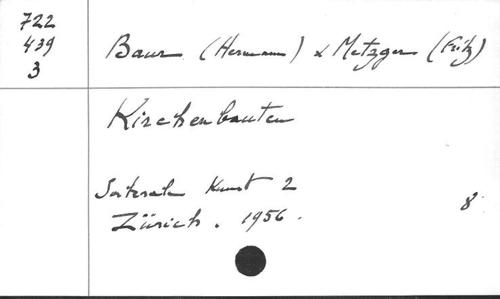 722
439
3
Baur (Hermann) & Metzger (Fritz)
Kirchenbauten
Kunst 2
Zürich. 1956.
8°